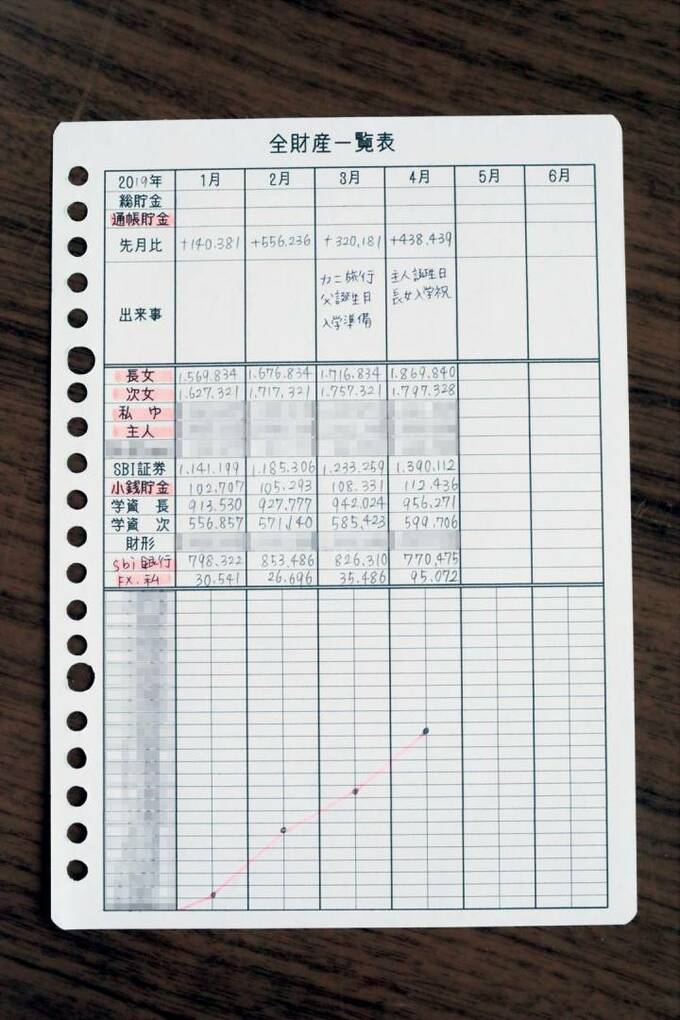 全財産一覧表
2019年 1月 2月 3月 4月 5月 6月
総貯金
通帳貯金
先月比 +140.381 +556.236 +320,181 +438,439
出来事 カニ旅行 主人誕生日
父誕生日 長女入学祝
入学準備
長女 1.569.834 1.676.834 1.716.834 1.869.840
次女 1.627.321 1,717,321 1.757.321 1.797.328
私 ゆ
主人
SBI証券 1.141.199 1.185.306 1.233.259 1.390.112
小銭貯金 102,707 105.293 108.331 112.436
学資 長 913.530 927.777 942.024 956.271
学資 次 556.857 571,140 585.423 599,706
財形
sbi銀行 798.322 853,486 826,310 770,475
FX.私 30.541 26.696 35.486 95.072